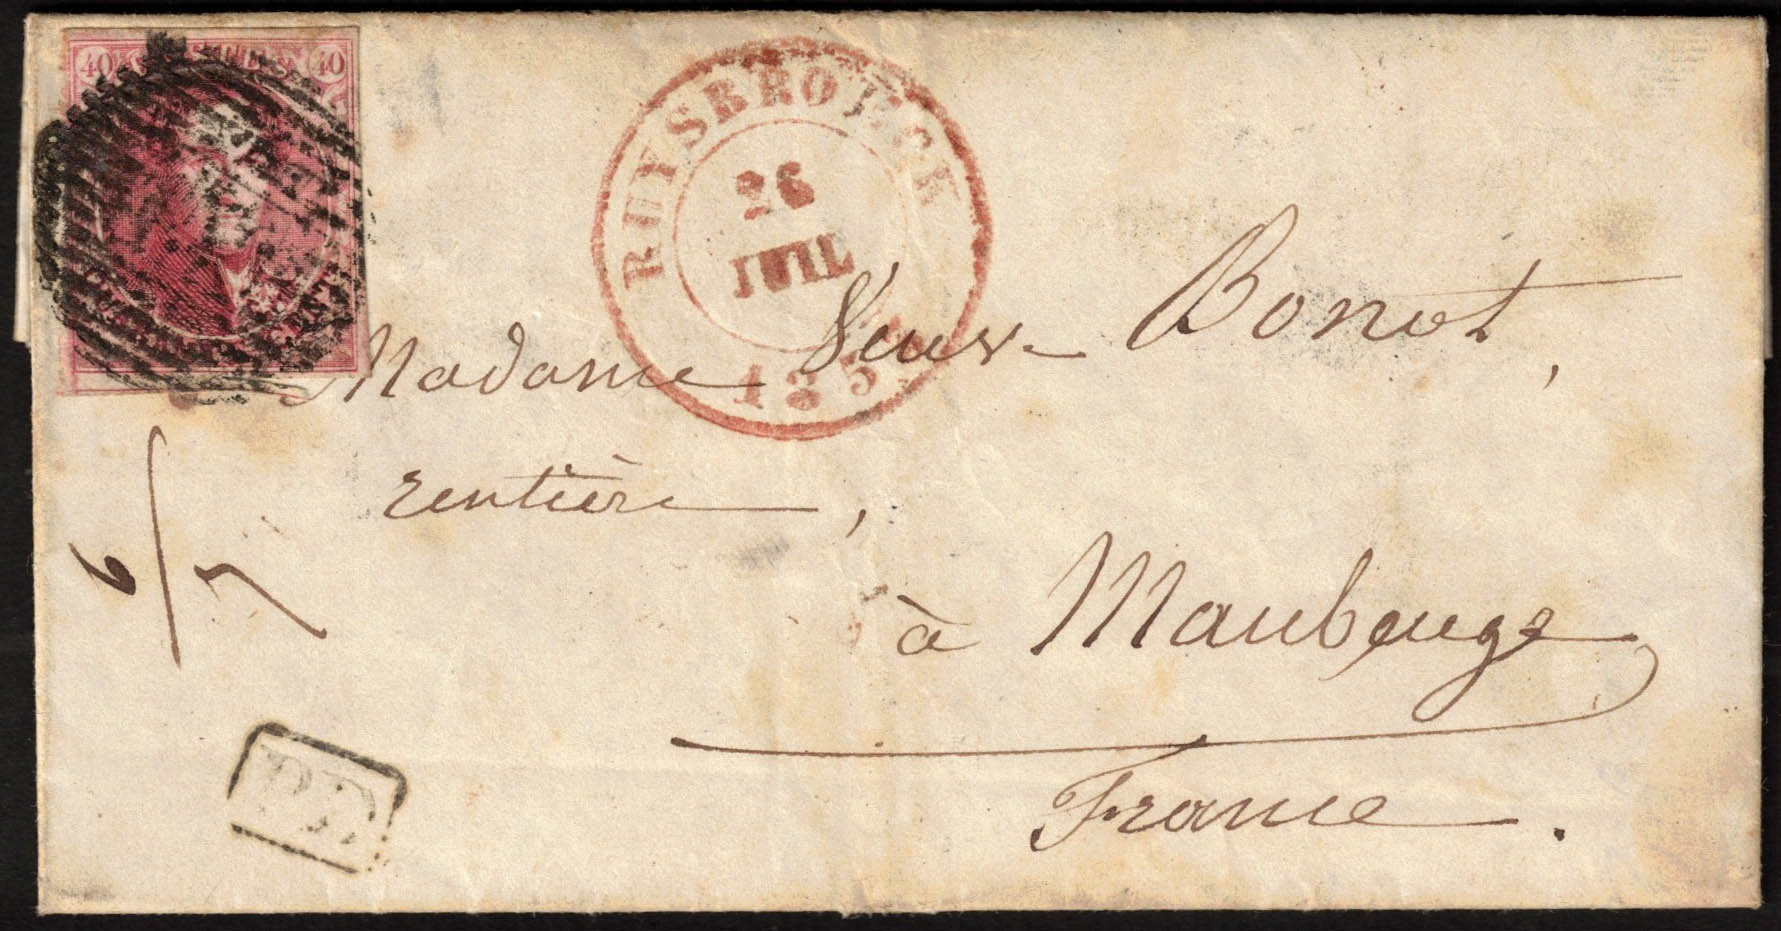 40 40
QUARANTE CENTS
RUYSBROECK
26
JUIL
185
Madame Veuve Bonot,
rentière,
à Maubeuge
France.
6/7
PD